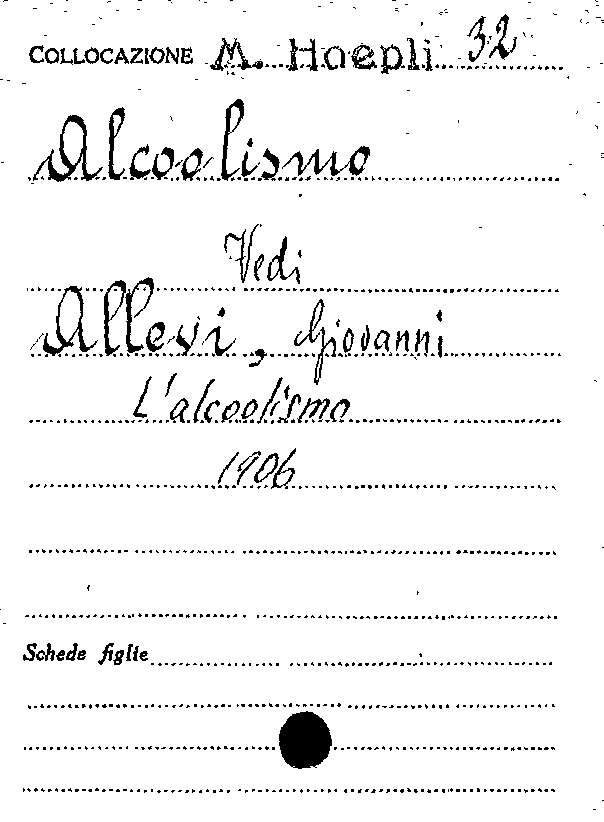 COLLOCAZIONE M. Hoepli 32
Alcoolismo
Vedi
Allevi, Giovanni
L'alcoolismo
1906
Schede figlie